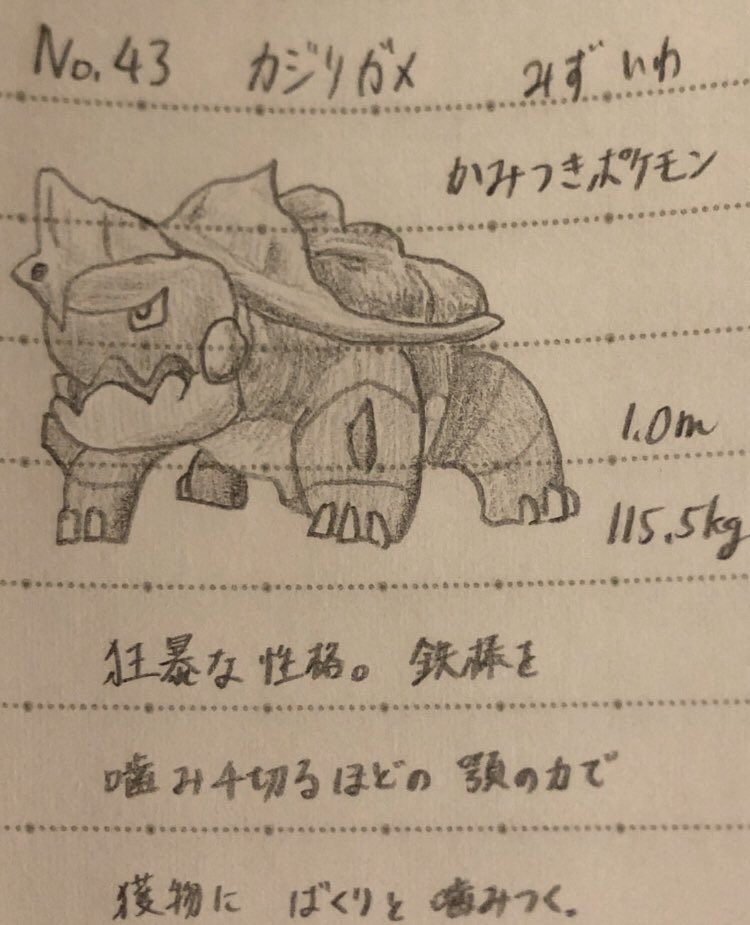 No.43 カジリガメ みず いわ
かみつきポケモン
1.0m
115.5kg
狂暴な性格。鉄棒を
噛み千切るほどの 顎の力で
獲物に ばくりと 噛みつく。